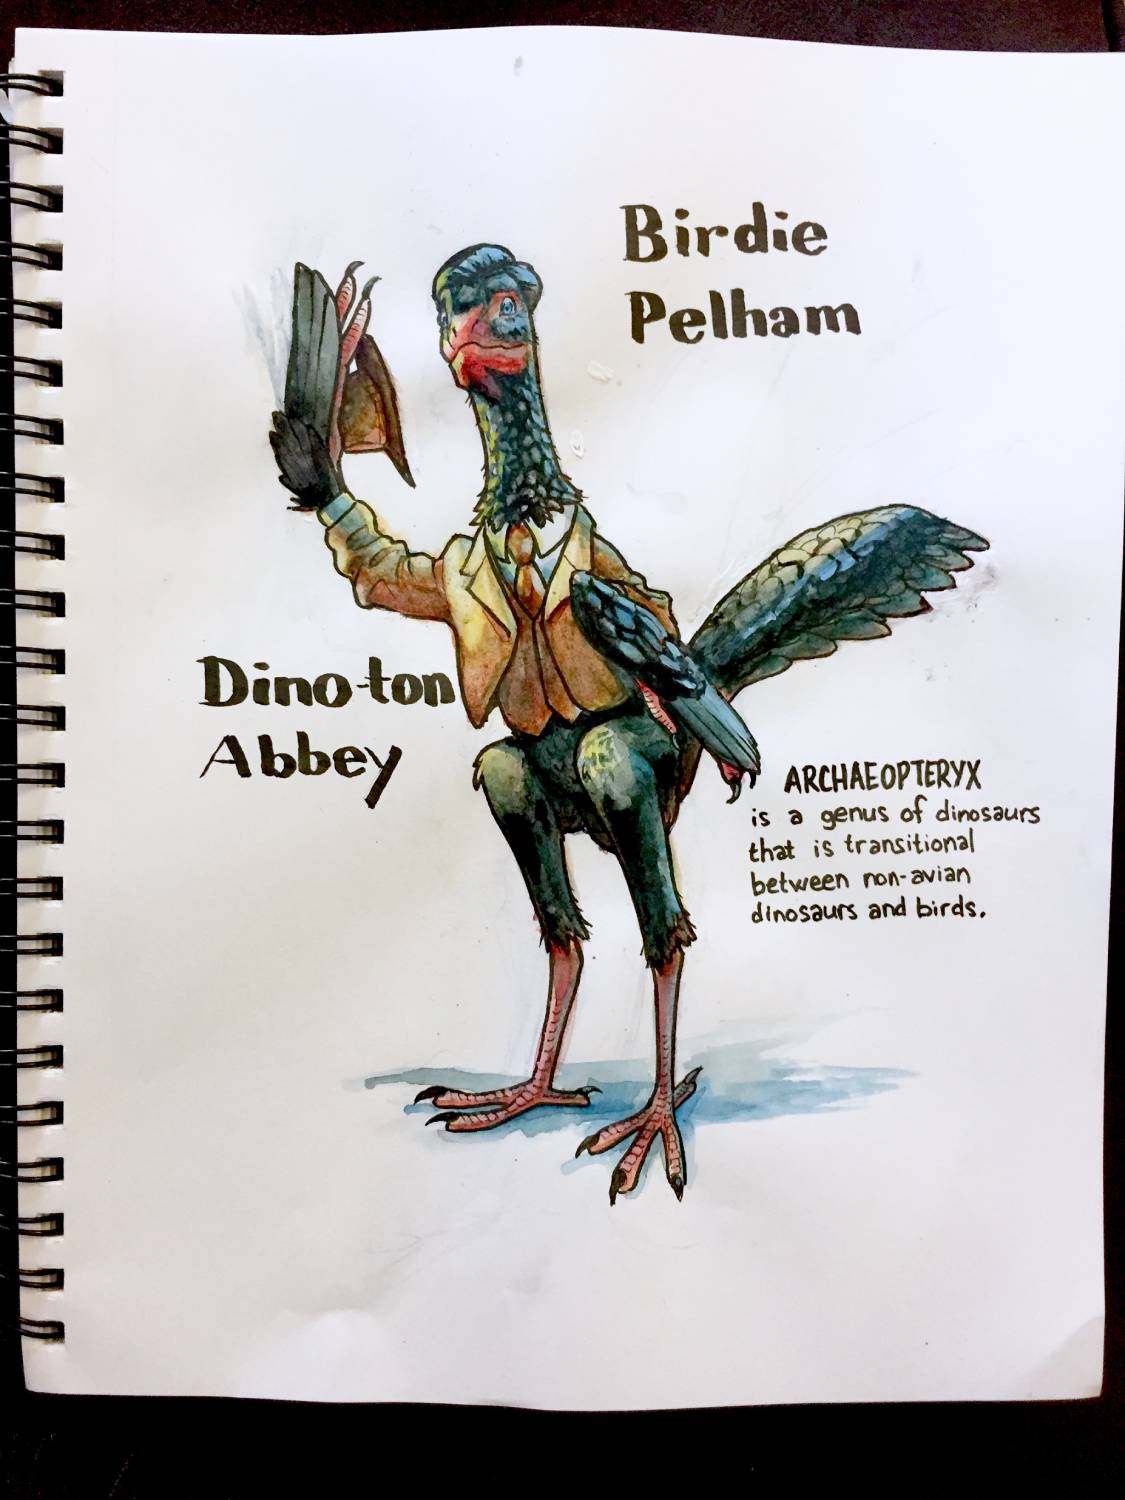 Birdie
Pelham
Dino-ton
Abbey
ARCHAEOPTERYX
is a genus of dinosaurs
that is transitional
between non-avian
dinosaurs and birds.